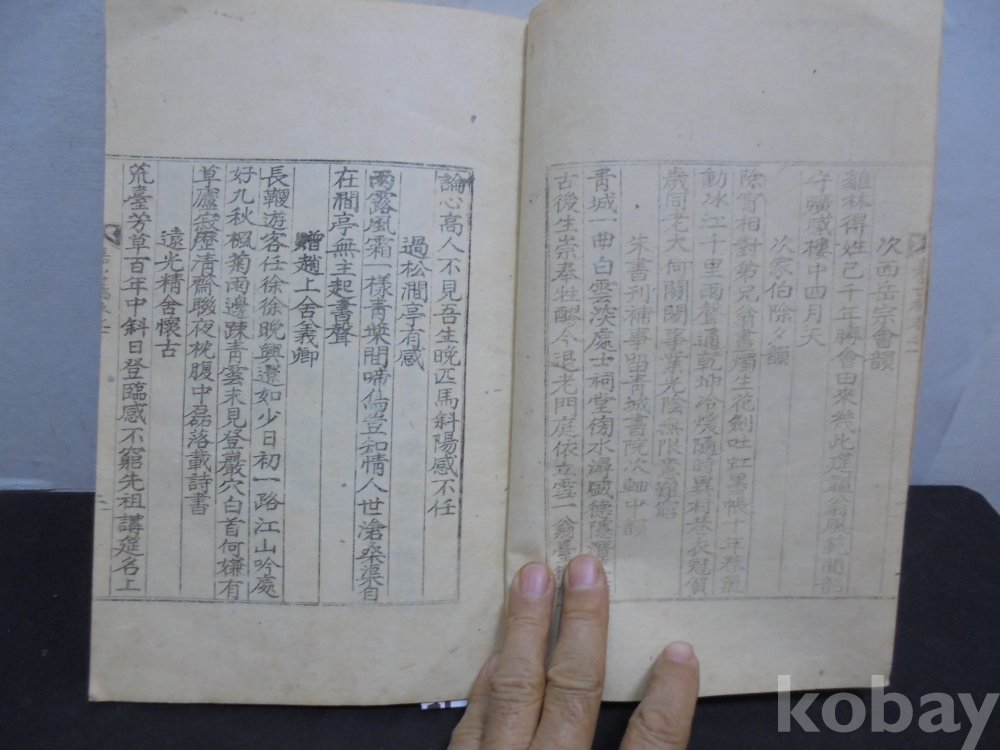 次西岳宗會韻
雞林得姓已千年勝會由來幾此筵
守曠感樓中四月天
次家伯除夕韻
除宵相對弟兄翁畫燭生花劍吐虹黑帳十年春氣
動冰江千里雨聲通乾坤冷煖隨時異村巷衣冠賀
歲同老大何關關事業光陰無限
朱書刊補事留青城書院次軸中韻
青城一曲白雲深處士祠堂傍水潯盛德隱
古後生崇奉牲醪今退老門庭依立雪一翁
論心高人不見吾生晚匹馬斜陽感不任
過松澗亭有感
雨露風霜一樣靑葉間啼鳥豈知情人世滄桑渠自
在澗亭無主起書聲
贈趙上舍義卿
長鞭遊客任徐徐晚興還如少日初一路江山吟處
好九秋楓菊雨邊踈靑雲未見登巖穴白首何嫌有
草廬寂寥清齋聯夜枕腹中磊落載詩書
遠光精舍懷古
荒臺芳草百年中斜日登臨感不窮先祖講筵名上
kobay